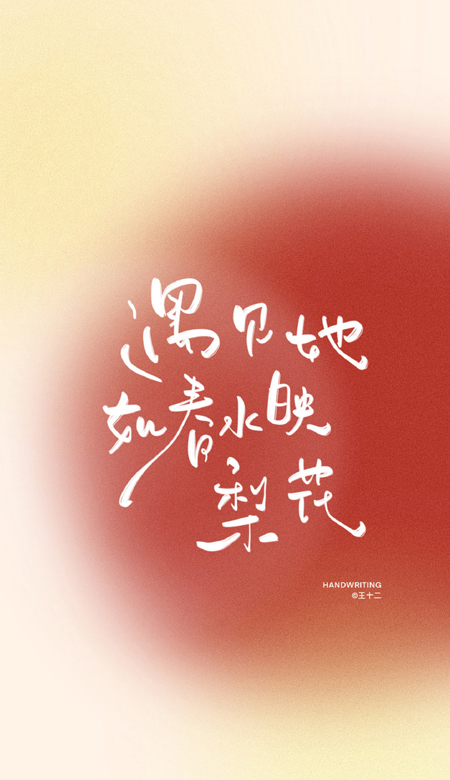 遇见她
如春水映
梨花
HANDWRITING
©王十二